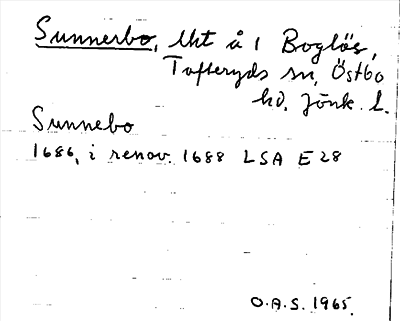 Sunnerbo, lht å 1 Boglös,
Tofteryds sn, Östbo
hd, Jönk. l.
Sunnebo
1686, i renov. 1688 LSA E 28
O.A.S. 1965.